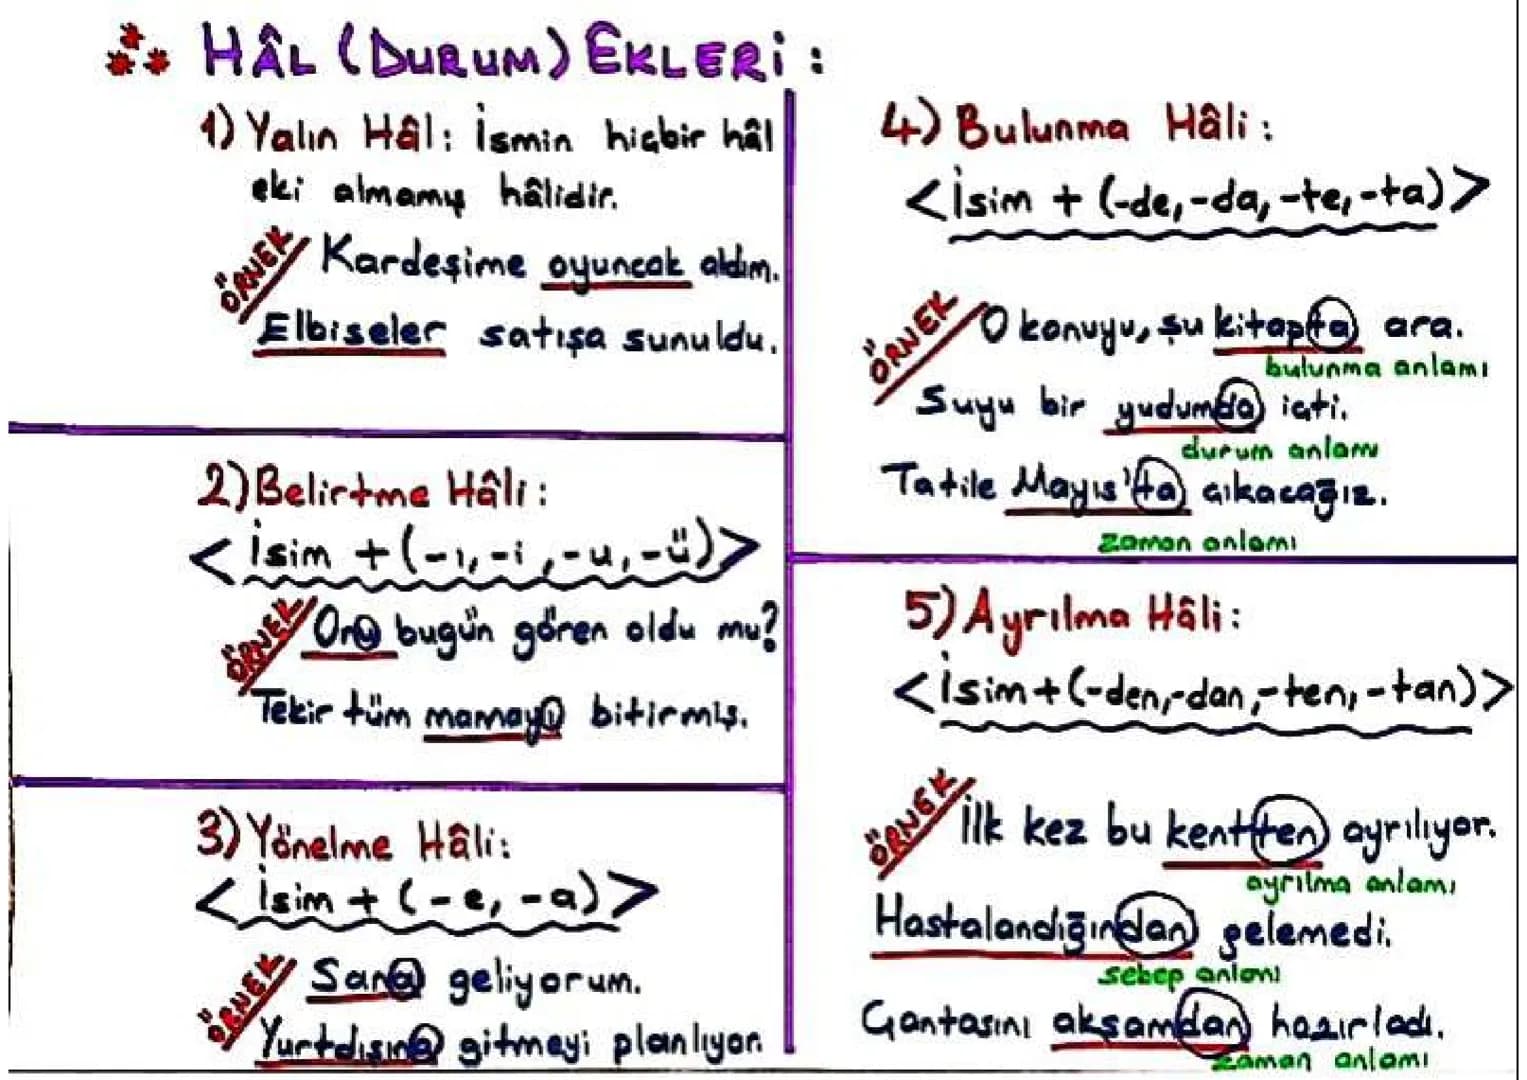 HÂL (DURUM) EKLERİ:
1) Yalın Hâl: İsmin hiçbir hâl
eki almamış hâlidir.
ÖRNEK
Kardeşime oyuncak aldım.
Elbiseler satışa sunuldu.
2) Belirtme Hâli:
<İsim + (-ı, -i, -u, -ü)>
ÖRNEK
Onu bugün gören oldu mu?
Tekir tüm mamayı bitirmiş.
3) Yönelme Hâli:
<İsim + (-e, -a)>
ÖRNEK
Sana geliyorum.
Yurtdışına gitmeyi planlıyor.
4) Bulunma Hâli:
<İsim + (-de, -da, -te, -ta)>
ÖRNEK
O konuyu, şu kitapta ara.
bulunma anlamı
Suyu bir yudumda içti.
durum anlamı
Tatile Mayıs'ta çıkacağız.
zaman anlamı
5) Ayrılma Hâli:
<İsim + (-den, -dan, -ten, -tan)>
ÖRNEK
İlk kez bu kentten ayrılıyor.
ayrılma anlamı
Hastalandığından gelemedi.
sebep anlamı
Çantasını akşamdan hazırladı.
zaman anlamı